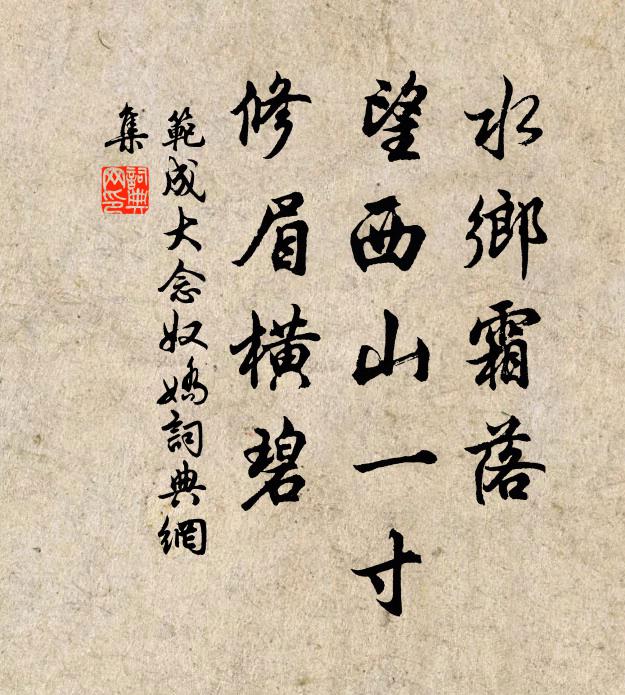 水鄉霜落
望西山一寸
修眉橫碧
範成大念奴嬌詞典網
集
詞典
网印